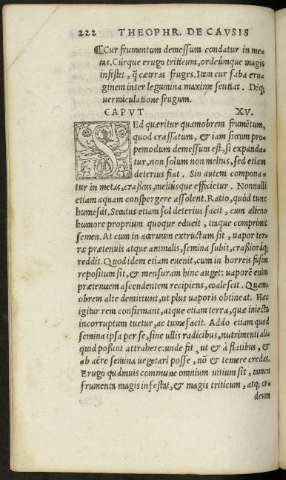 222 THEOPHR. DE CAVSIS
Cur frumentum demessum condatur in me
tas. Curque erugo triticum, ordeúmque magis
infestet, q̃ cæteras fruges. Item cur faba eru
ginem inter legumina maxime sentiat. Déq;
vermiculatione frugum.
CAPVT XV.
SED quæritur quamobrem frumētum,
quod crassatum, & iam siccum pro-
pemodum demessum est, si expanda-
tur, non solum non melius, sed etiam
deterius fiat. Sin autem compona-
tur in metas, crassius, meliúsque efficietur. Nonnulli
etiam aquam conspergere assolent. Ratio, quòd tunc
humescit. Secatus etiam sol deterius facit, cum alieno
humore proprium quoque educit, itaque comprimit
semen. At cum in aceruum extructum sit, vapor ter-
ræ prætenuis atque animalis, semina subit, crassioráq;
reddit. Quod idem etiam euenit, cum in horreis fissim
repositum sit, & mensuram hinc auget: vaporē enim
prætenuem ascendentem recipiens, coalescit. Quam-
obrem alte demittunt, ut plus vaporis obtineat. Hæc
igitur rem confirmant, atque etiam terra, quæ iniecta
incorruptum tuetur, ac tumefacit. Addo etiam quod
semina ipsa per se, sine ullis radicibus, nutrimenti ali-
quid possunt attrahere: unde fit, ut & à flatibus, &
ab aëre semina vegetari posse, nō & temere credas.
Erugo quãmuis commune omnium uitium sit, tamen
frumenta magis infestat, & magis triticum, atq; or-
deum